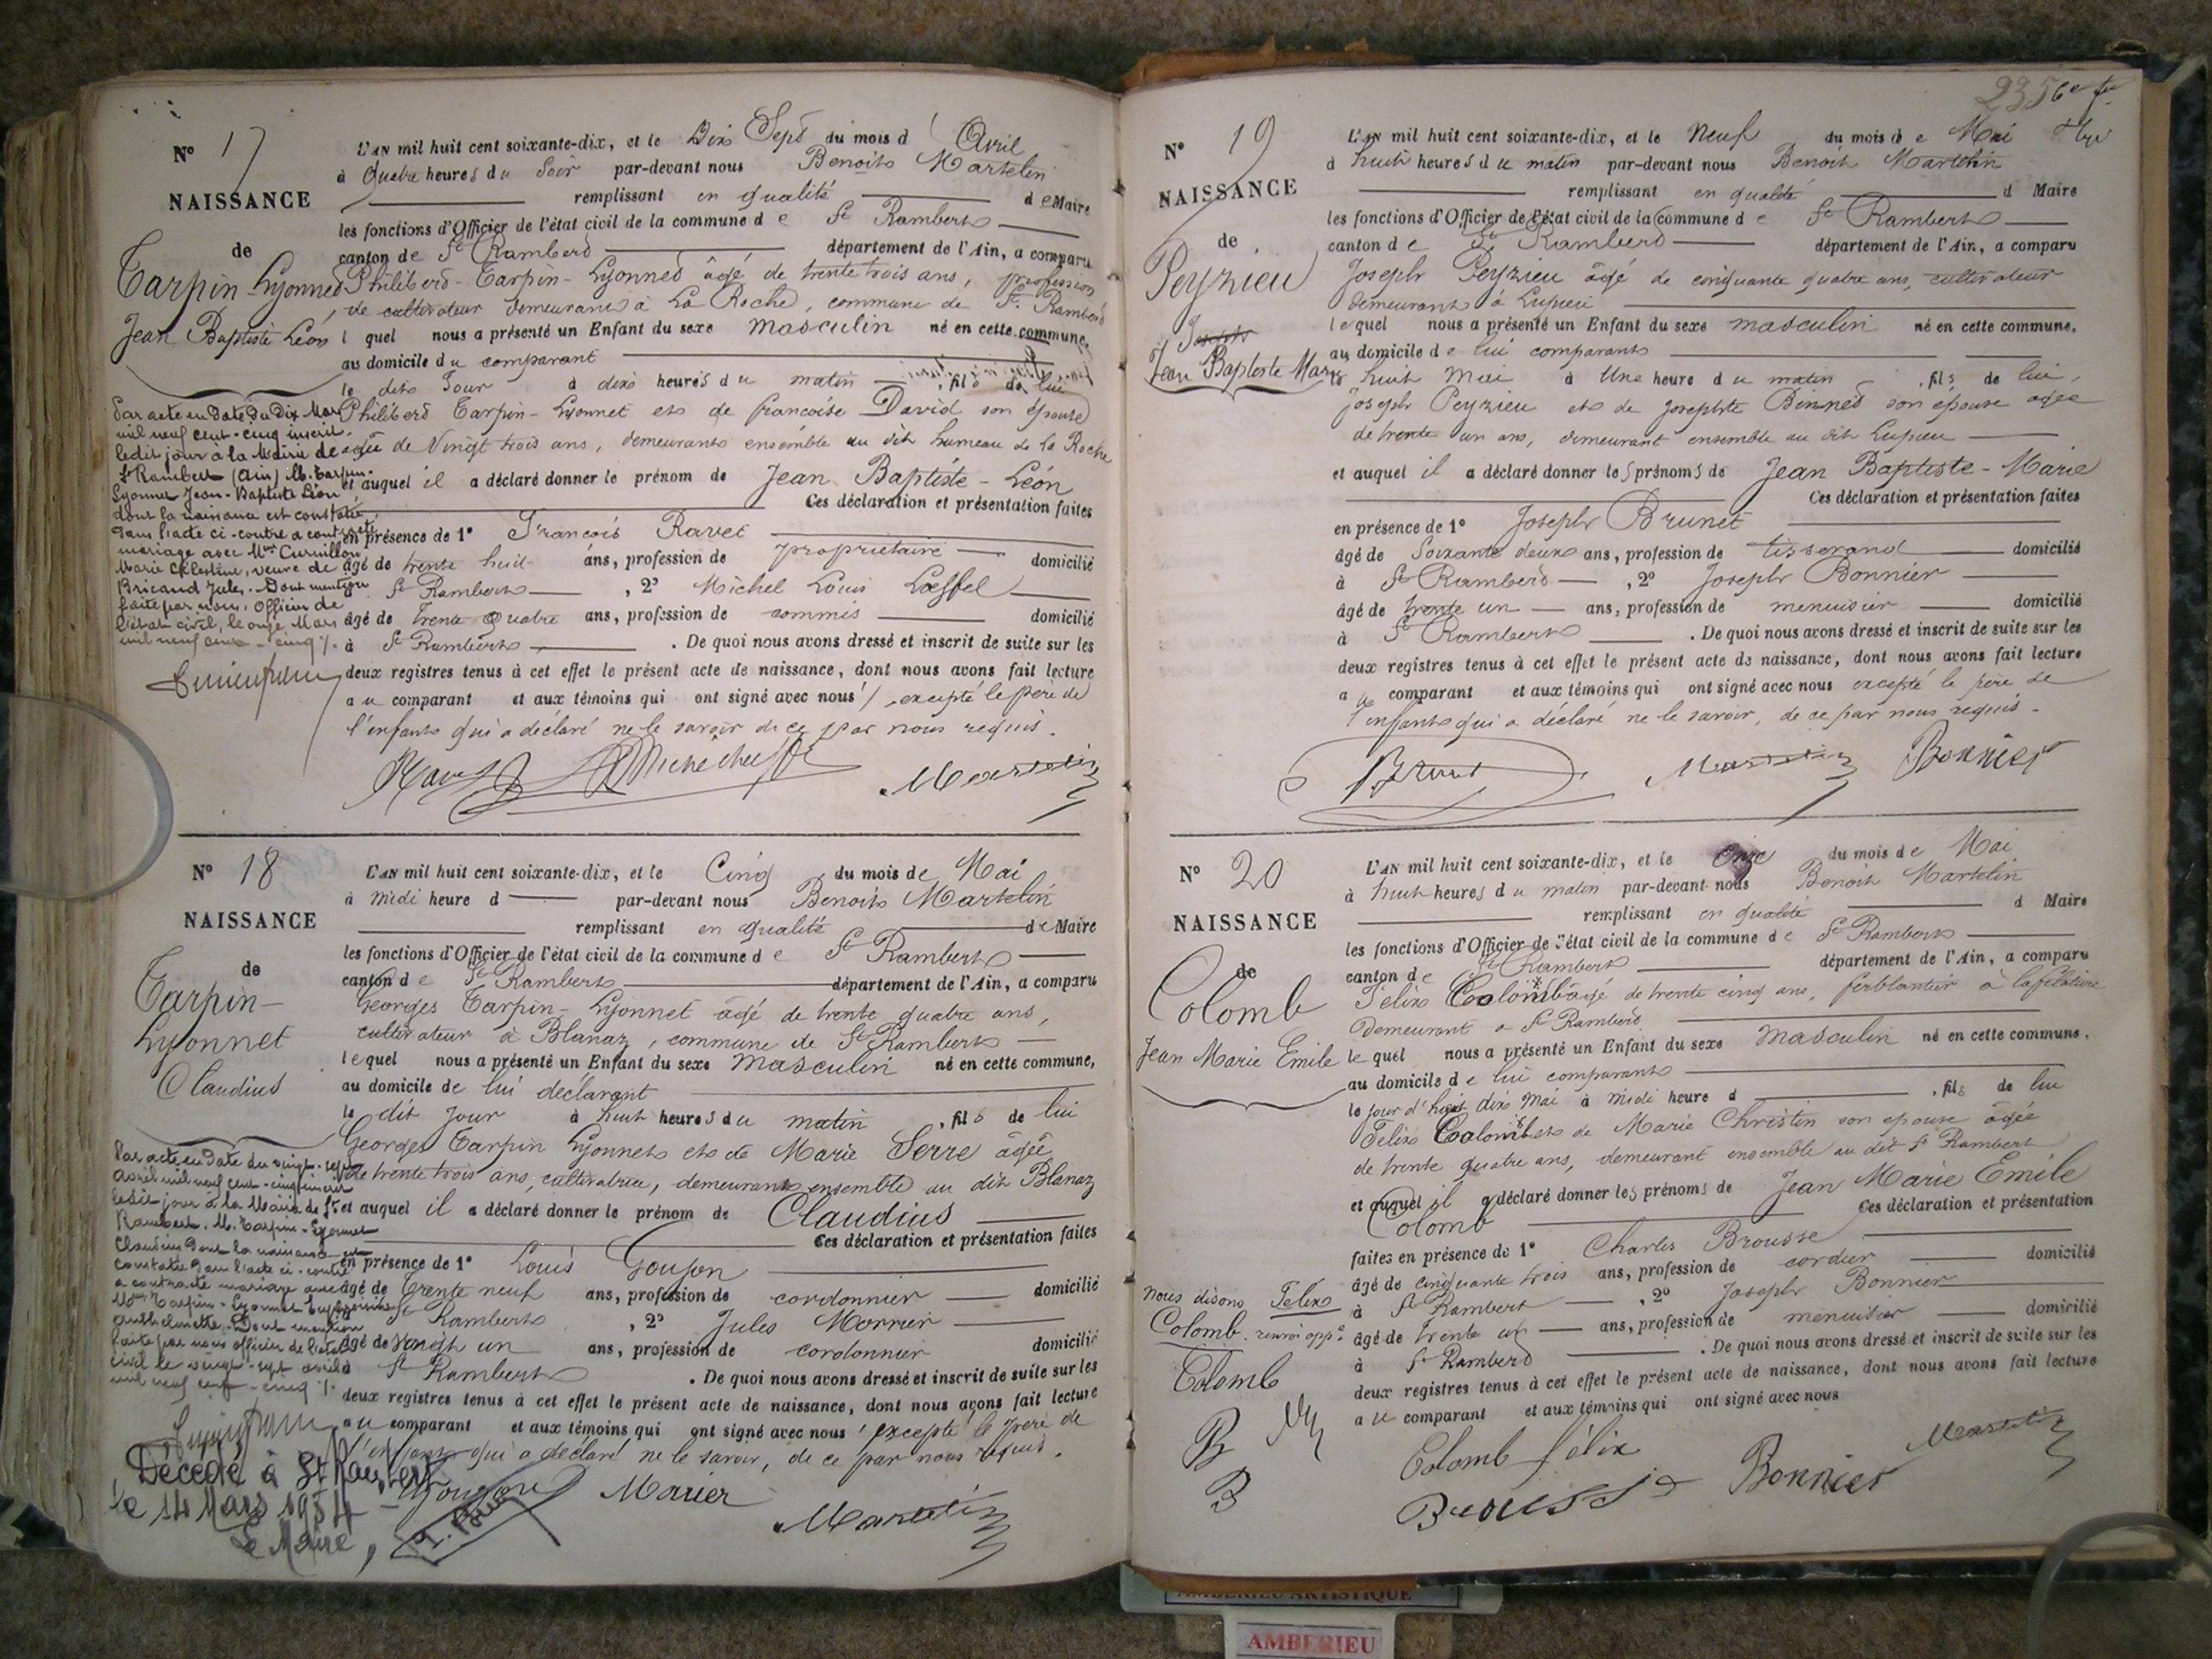 N° 17
NAISSANCE
de
Tarpin-Lyonned
Jean Baptiste Léon
L'AN mil huit cent soixante-dix, et le Dix Sept du mois d' Avril
à Quatre heures du Soir par-devant nous Benoits Martelin
remplissant en qualité de Maire
les fonctions d'Officier de l'état civil de la commune de St Ramberts
canton de St Ramberd département de l'Ain, a comparu
Philiberd-Tarpin-Lyonned âgé de trente trois ans, profession
de cultivateur demeurant à La Roche, commune de St Ramberd
l quel nous a présenté un Enfant du sexe masculin né en cette commune,
au domicile du comparant
le dits Jour à dix heures du matin, fils de lui
Philiberd Tarpin-Lyonnet ets de francoise David son épouse
agée de Vingt trois ans, demeurants ensemble au dit hameau de La Roche
et auquel il a déclaré donner le prénom de Jean Baptiste-Léon
Ces déclaration et présentation faites
en présence de 1° Francois Ravet
âgé de trente huit ans, profession de propriétaire domicilié
St Ramberts, 2° Michel Louis Loeffel
âgé de trente quatre ans, profession de commis domicilié
à St Ramberts. De quoi nous avons dressé et inscrit de suite sur les
deux registres tenus à cet effet le présent acte de naissance, dont nous avons fait lecture
au comparant et aux témoins qui ont signé avec nous, excepté le père de
l'enfants qui a déclaré ne le savoir de ce par nous requis.
Martelin
Par acte en date du Dix Mars
mil neuf cent-cinq inscrit
ledit jour à la Mairie de
St Rambert (Ain) M. Tarpin-
Lyonnet Jean-Baptiste Léon
dont la naissance est constatée
dans l'acte ci-contre a contracté
mariage avec Mme Curnillon
Marie Célestine, veuve de
Bricaud Jules. Dont mention
faite par nous, Officier de
l'état civil, le onze Mars
mil neuf cent-cinq ./.
N° 18
NAISSANCE
de
Tarpin-
Lyonnet
Claudius
L'AN mil huit cent soixante-dix, et le Cinq du mois de Mai
à midi heure d par-devant nous Benoits Martelin
remplissant en qualité de Maire
les fonctions d'Officier de l'état civil de la commune de St Ramberts
canton de St Ramberts département de l'Ain, a comparu
Georges Tarpin-Lyonnet âgé de trente quatre ans,
cultivateur à Blanaz, commune de St Ramberts
lequel nous a présenté un Enfant du sexe masculin né en cette commune,
au domicile de lui déclarant
le dit jour à huit heures du matin, fils de lui
Georges Tarpin Lyonnets ets de Marie Serre âgée
de trente trois ans, cultivatrice, demeurants ensemble au dit Blanaz
et auquel il a déclaré donner le prénom de Claudius
Ces déclaration et présentation faites
en présence de 1° Louis Goujon
âgé de trente neuf ans, profession de cordonnier domicilié
St Ramberts, 2° Jules Morrier
âgé de vingt un ans, profession de cordonnier domicilié
à St Ramberts. De quoi nous avons dressé et inscrit de suite sur les
deux registres tenus à cet effet le présent acte de naissance, dont nous avons fait lecture
au comparant et aux témoins qui ont signé avec nous, excepté le père de
l'enfants qui a déclaré ne le savoir, de ce par nous requis.
Goujon Morier
Martelin
Par acte en date du vingt-sept
Avril mil neuf cent-cinq inscrit
ledit jour à la Mairie de St
Rambert, M. Tarpin-Lyonnet
Claudius dont la naissance est
constatée dans l'acte ci-contre
a contracté mariage avec
Tarpin-Lyonnet
Anthelmette. Dont mention
faite par nous officier de l'état
civil le vingt-sept avril
mil neuf cent-cinq ./.
Décédé à St Rambert
le 14 Mars 1954
Le Maire,
235
N° 19
NAISSANCE
de
Peyzieu
Joseph
Jean Baptiste Marie
L'AN mil huit cent soixante-dix, et le Neuf du mois de Mai
à huit heures du matin par-devant nous Benoit Martelin
remplissant en qualité d Maire
les fonctions d'Officier de l'état civil de la commune de St Ramberts
canton de St Ramberd département de l'Ain, a comparu
Joseph Peyzieu âgé de cinquante quatre ans, cultivateur
demeurants à Lupieu
lequel nous a présenté un Enfant du sexe masculin né en cette commune,
au domicile de lui comparants
le huit Mai à Une heure du matin, fils de lui,
Joseph Peyzieu ets de Josephte Bonned son épouse agée
de trente un ans, demeurant ensemble au dit Lupieu
et auquel il a déclaré donner les prénoms de Jean Baptiste-Marie
Ces déclaration et présentation faites
en présence de 1° Joseph Brunet
âgé de Soixante deux ans, profession de tisserand domicilié
à St Ramberd, 2° Joseph Bonnier
âgé de trente un ans, profession de menuisier domicilié
à St Ramberts. De quoi nous avons dressé et inscrit de suite sur les
deux registres tenus à cet effet le présent acte de naissance, dont nous avons fait lecture
au comparant et aux témoins qui ont signé avec nous excepté le père de
l'enfants qui a déclaré ne le savoir, de ce par nous requis.
Brunet Martelin Bonnier
N° 20
NAISSANCE
de
Colomb
Jean Marie Emile
L'AN mil huit cent soixante-dix, et le Onze du mois de Mai
à huit heures du matin par-devant nous Benoit Martelin
remplissant en qualité d Maire
les fonctions d'Officier de l'état civil de la commune de St Ramberts
canton de St Ramberts département de l'Ain, a comparu
Félix Colomb âgé de trente cinq ans, ferblantier à la filature
demeurant à St Ramberd
lequel nous a présenté un Enfant du sexe masculin né en cette commune,
au domicile de lui comparants
le jour d'hier dix Mai à midi heure d, fils de lui
Félix Colomb ets de Marie Christin son épouse âgée
de trente quatre ans, demeurant ensemble au dit St Rambert
et auquel il a déclaré donner les prénoms de Jean Marie Emile
Colomb Ces déclaration et présentation
faites en présence de 1° Charles Brousse
âgé de cinquante trois ans, profession de cordier domicilié
à St Rambert, 2° Joseph Bonnier
âgé de trente un ans, profession de menuisier domicilié
à St Ramberd. De quoi nous avons dressé et inscrit de suite sur les
deux registres tenus à cet effet le présent acte de naissance, dont nous avons fait lecture
au comparant et aux témoins qui ont signé avec nous
Nous disons Félix
Colomb. renvoi appé
Colomb
B
B
Colomb félix Martelin
Brousse Bonnier
AMBERIEU ARTISTIQUE
AMBERIEU